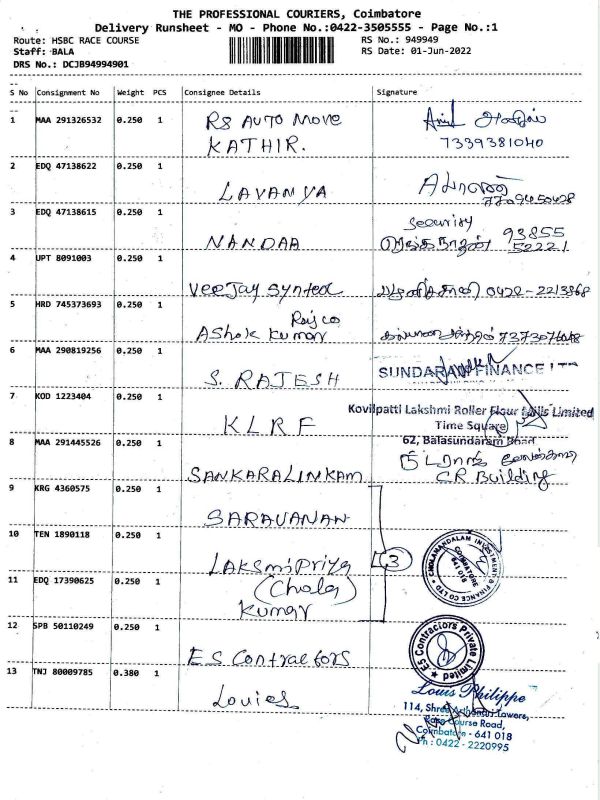 THE PROFESSIONAL COURIERS, Coimbatore
Delivery Runsheet - MO - Phone No.:0422-3505555 - Page No.:1
Route: HSBC RACE COURSE
RS No.: 949949
Staff: BALA
RS Date: 01-Jun-2022
DRS No.: DCJB94994901
S No Consignment No Weight PCS Consignee Details Signature
1 MAA 291326532 0.250 1 RS AUTO MOVE
KATHIR.
7339381040
2 EDQ 47138622 0.250 1 LAVANYA
3 EDQ 47138615 0.250 1 NANDAA
Security
93855
52221
4 UPT 8091003 0.250 1 VeeJay Syntex
0422-2213868
5 HRD 745373693 0.250 1 Ashok Kumar
6 MAA 290819256 0.250 1 S. RAJESH
SUNDARAM FINANCE LTD
7 KOD 1223404 0.250 1 KLRF
Kovilpatti Lakshmi Roller Flour Mills Limited
Time Square
62, Balasundaram Road
8 MAA 291445526 0.250 1 SANKARALINKAM
GR Building
9 KRG 4360575 0.250 1 SARAVANAN
10 TEN 1890118 0.250 1 LAKSMIPRIYA
(Chola)
3
CHOLAMANDALAM INVESTMENT & FINANCE CO LTD
COIMBATORE
641 018
11 EDQ 17390625 0.250 1 Kumar
12 SPB 50110249 0.250 1 ES Contractors
ES Contractors Private Limited
13 TNJ 80009785 0.380 1 Louies
Louis Philippe
114, Shree Towers,
Race Course Road,
Coimbatore - 641 018
Ph : 0422 - 2220995